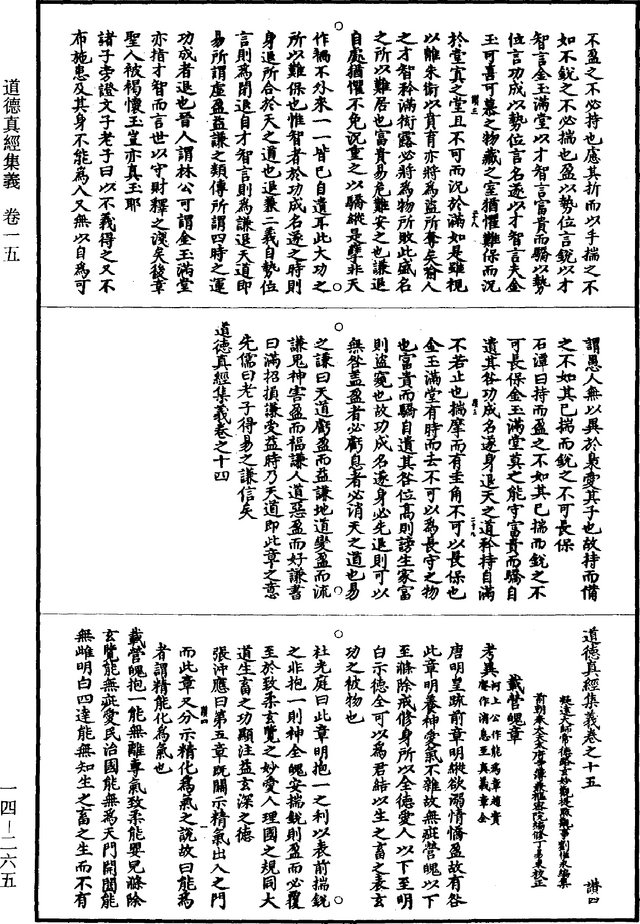 道德真經集義 卷一五
一四－二六五
不盈之不必持也應其折而以手揣之不
如不銳之不必揣也盈以勢位言銳以才
智言金玉滿堂以才智言富貴而驕以勢
位言功成以勢位言名遂以才智言夫金
玉可喜可慕之物藏之室猶懼難保而沉
於堂寘之堂且不可而沉於滿如是雖覗
以離朱衛以賁育亦將為盜所奪矣矧人
之才智矜滿衒露必將為物所敗此盛名
之所以難居也富貴易危難安之也謙退
自處猶懼不免沉重之以驕縱是孽非天
作禍不外來一一皆已自遺耳此大功之
所以難保也惟智者於功成名遂之時則
身退所合於天之道也退兼二義自勢位
言則為閒退自才智言則為謙退天道即
易所謂虛盈益謙之類傳所謂四時之運
功成者退也晉人謂林公可謂金玉滿堂
亦指才智而言世以守財釋之淺矣後章
聖人被褐懷玉豈亦真玉耶
諸子旁證文子老子曰以不義得之又不
布施患及其身不能為人又無以自為可
謂愚人無以異於梟愛其子也故持而備
之不如其已揣而銳之不可長保
石潭曰持而盈之不如其已揣而銳之不
可長保金玉滿堂莫之能守富貴而驕自
遺其咎功成名遂身退天之道矜持自滿
不若止也揣摩而有圭角不可以長保也
金玉滿堂有時而去不可以為長守之物
也富貴而驕自遺其咎位高則謗生家富
則盜窺也故功成名遂身必先退則可以
無咎蓋盈者必虧息者必消天之道也易
之謙曰天道虧盈而益謙地道變盈而流
謙鬼神害盈而福謙人道惡盈而好謙書
曰滿招損謙受益時乃天道即此章之意
先儒曰老子得易之謙信矣
道德真經集義卷之十四
道德真經集義卷之十五 讃四
凝遠大師常德路玄妙觀提點觀事劉惟永編集
前朝奉大夫太府寺簿兼樞密院編修丁易東校正
載營魄章
考異河上公作能為章趙實
庵作消息至真義章全
唐明皇疏前章明縱欲溺情憍盈故有咎
此章明養神愛氣不雜故無疵營魄以下
至滌除戒修身所以全德愛人以下至明
白示德全可以為君結以生之畜之表玄
功之被物也
杜光庭曰此章明抱一之利以表前揣銳
之非抱一則神全魄安揣銳則盈而必覆
至於致柔玄覽之妙愛人理國之規同大
道生畜之功顯注益玄深之德
張沖應曰第五章既關示精氣出入之門
而此章又分示精化為氣之說故曰能為
者謂精能化為氣也
載營魄抱一能無離專氣致柔能嬰兒滌除
玄覽能無疵愛民治國能無為天門開闔能
無雌明白四達能無知生之畜之生而不有